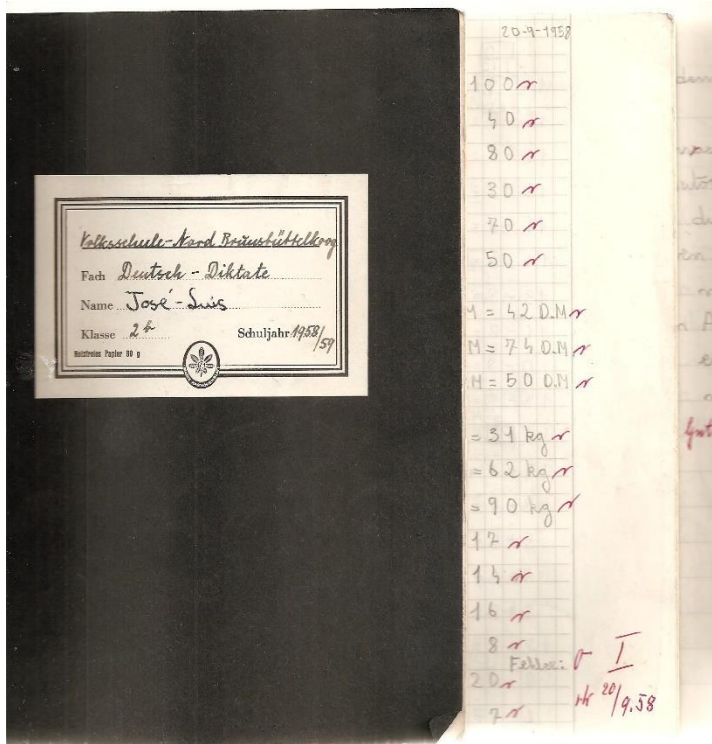 Volksschule-Nord Brunsbüttelkoog
Fach Deutsch - Diktate
Name José-Luis
Klasse 2b
Schuljahr 1958/59
Holzfreies Papier 80 g
20-9-1958
100
40
80
30
70
50
M = 42 D.M
M = 74 D.M
M = 50 D.M
= 31 kg
= 62 kg
= 90 kg
17
14
16
8
Fehler: 0 I
20
20/9.58
7
Gut